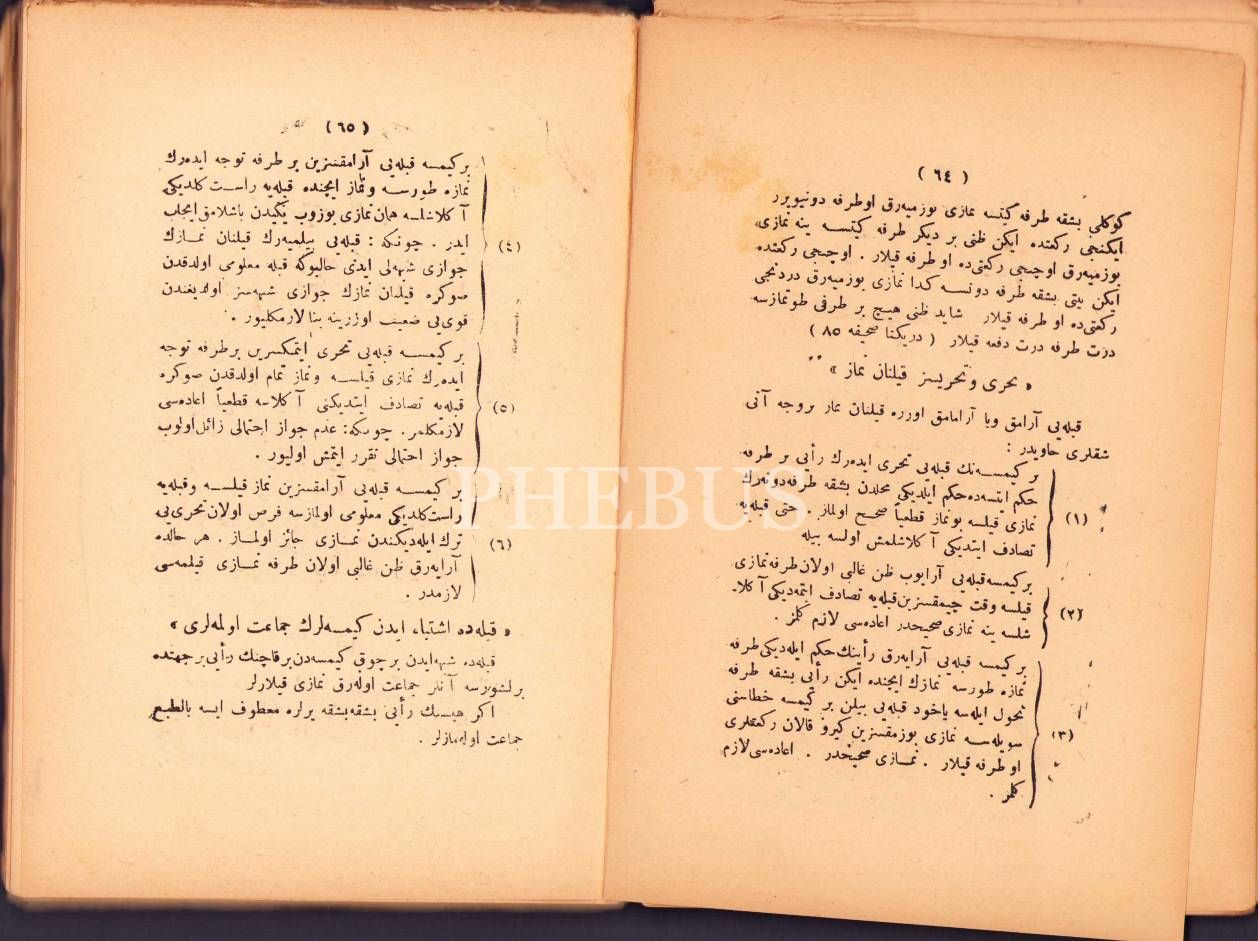 ( ٦٤ )
كوكلى بشقه طرفه كيتسه نمازى بوزميه‌رق اوطرفه دونيويرر
ايكنجى ركعتده ايكن ظنى بر ديكر طرفه كيتسه ينه نمازى
بوزميه‌رق اوچنجى ركعتى‌ده او طرفه قيلار . اوچنجى ركعتده
ايكن بشقه طرفه دونسه كذا نمازى بوزميه‌رق دردنجى
ركعتى‌ده او طرفه قيلار شايد ظنى هيچ بر طرفى طوتمازسه
درت طرفه درت دفعه قيلار ( دريكتا صحيفه ٨٥ )
« تحرى و تحريسز قيلنان نماز »
قبله‌يى آرامق ويا آرامامق اوزره قيلنان نماز بروجه آتى
شقلرى حاويدر :
(١) بر كيمسه‌نك قبله‌يى تحرى ايده‌رك رأيى بر طرفه
حكم ايتسه‌ده حكم ايلديكى محلدن بشقه طرفه دونه‌رك
نمازى قيلسه بونماز قطعياً صحيح اولماز . حتى قبله‌يه
تصادف ايتديكى آكلاشلمش اولسه بيله
(٢) بركيمسه قبله‌يى آرايوب ظن غالبى اولان طرفه نمازى
قيلسه وقت چيقمقسزين قبله‌يه تصادف ايتمه‌ديكى آكلا-
شلسه ينه نمازى صحيحدر اعاده‌سى لازم كلمز .
(٣) بر كيمسه قبله‌يى آرايه‌رق رأينك حكم ايله‌ديكى طرفه
نمازه طورسه نمازك ايچنده ايكن رأيى بشقه طرفه
تحول ايله‌سه ياخود قبله‌يى بيلن بر كيمسه خطاسنى
سويله‌سه نمازى بوزمقسزين كيرو قالان ركعتلرى
او طرفه قيلار . نمازى صحيحدر . اعاده‌سى لازم
كلمز .
( ٦٥ )
(٤) بركيمسه قبله‌يى آرامقسزين بر طرفه توجه ايده‌رك
نمازه طورسه و نماز ايچنده قبله‌يه راست كلديكى
آكلاشلسه همان نمازى بوزوب يكيدن باشلامق ايجاب
ايدر . چونكه : قبله‌يى بيلميه‌رك قيلنان نمازك
جوازى شبهه‌لى ايدى حالبوكه قبله معلومى اولدقدن
صوكره قيلنان نمازك جوازى شبهه‌سز اولديغندن
قوى‌يى ضعيف اوزرينه بنا لازمكليور .
(٥) بر كيمسه قبله‌يى تحرى ايتمكسزين برطرفه توجه
ايده‌رك نمازى قيلسه و نماز تمام اولدقدن صوكره
قبله‌يه تصادف ايتديكنى آكلاسه قطعياً اعاده‌سى
لازمكلمز . چونكه : عدم جواز احتمالى زائل اولوب
جواز احتمالى تقرر ايتمش اوليور .
(٦) بر كيمسه قبله‌يى آرامقسزين نماز قيلسه وقبله‌يه
راست كلديكى معلومى اولمازسه فرض اولان تحرى‌يى
ترك ايله‌ديكندن نمازى جائز اولماز . هر حالده
آرايه‌رق ظن غالبى اولان طرفه نمازى قيلمه‌سى
لازمدر .
« قبله‌ده اشتباه ايدن كيمسه‌لرك جماعت اولمه‌لرى »
قبله‌ده شبهه ايدن بر چوق كيمسه‌دن برقاچنك رأيى بر جهتده
برلشورسه آنلر جماعت اوله‌رق نمازى قيلارلر
اكر هپسنك رأيى بشقه بشقه يرلره معطوف ايسه بالطبع
جماعت اوله‌مازلر .
PHEBUS